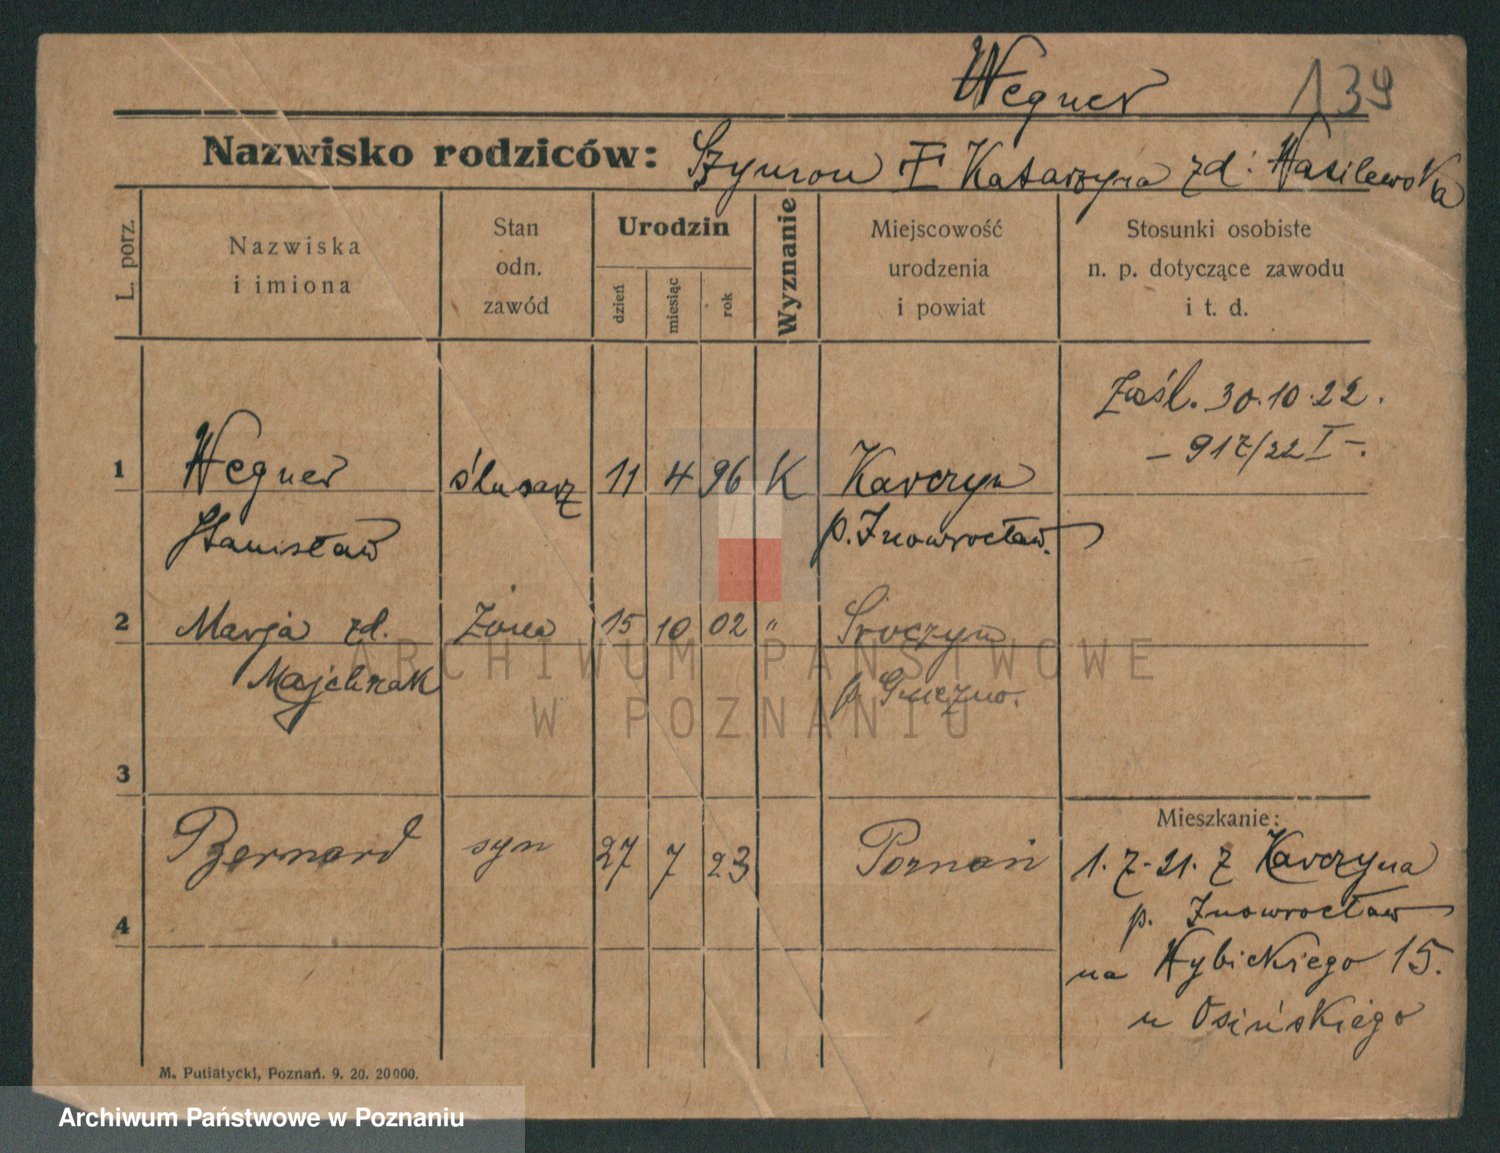 Wegner
139
Nazwisko rodziców: Szymon I Katarzyna zd: Wasilewska
L. porz.
Nazwiska
i imiona
Stan
odn.
zawód
Urodzin
dzień
miesiąc
rok
Wyznanie
Miejscowość
urodzenia
i powiat
Stosunki osobiste
n. p. dotyczące zawodu
i t. d.
Zaśl. 30.10.22.
- 917/22 I -.
1 Wegner ślusarz 11 4 96 K Karczyn
Stanisław p. Inowrocław.
2 Marja zd. Żona 15 10 02 " Sroczyn
Majchrzak p. Gniezno.
3
Mieszkanie:
Bernard syn 27 7 23 Poznań
1.7.21. z Karczyna
p. Inowrocław
4
na Wybickiego 15.
u Osińskiego
M. Putiatycki, Poznań. 9. 20. 20000.
ARCHIWUM PAŃSTWOWE
W POZNANIU
Archiwum Państwowe w Poznaniu